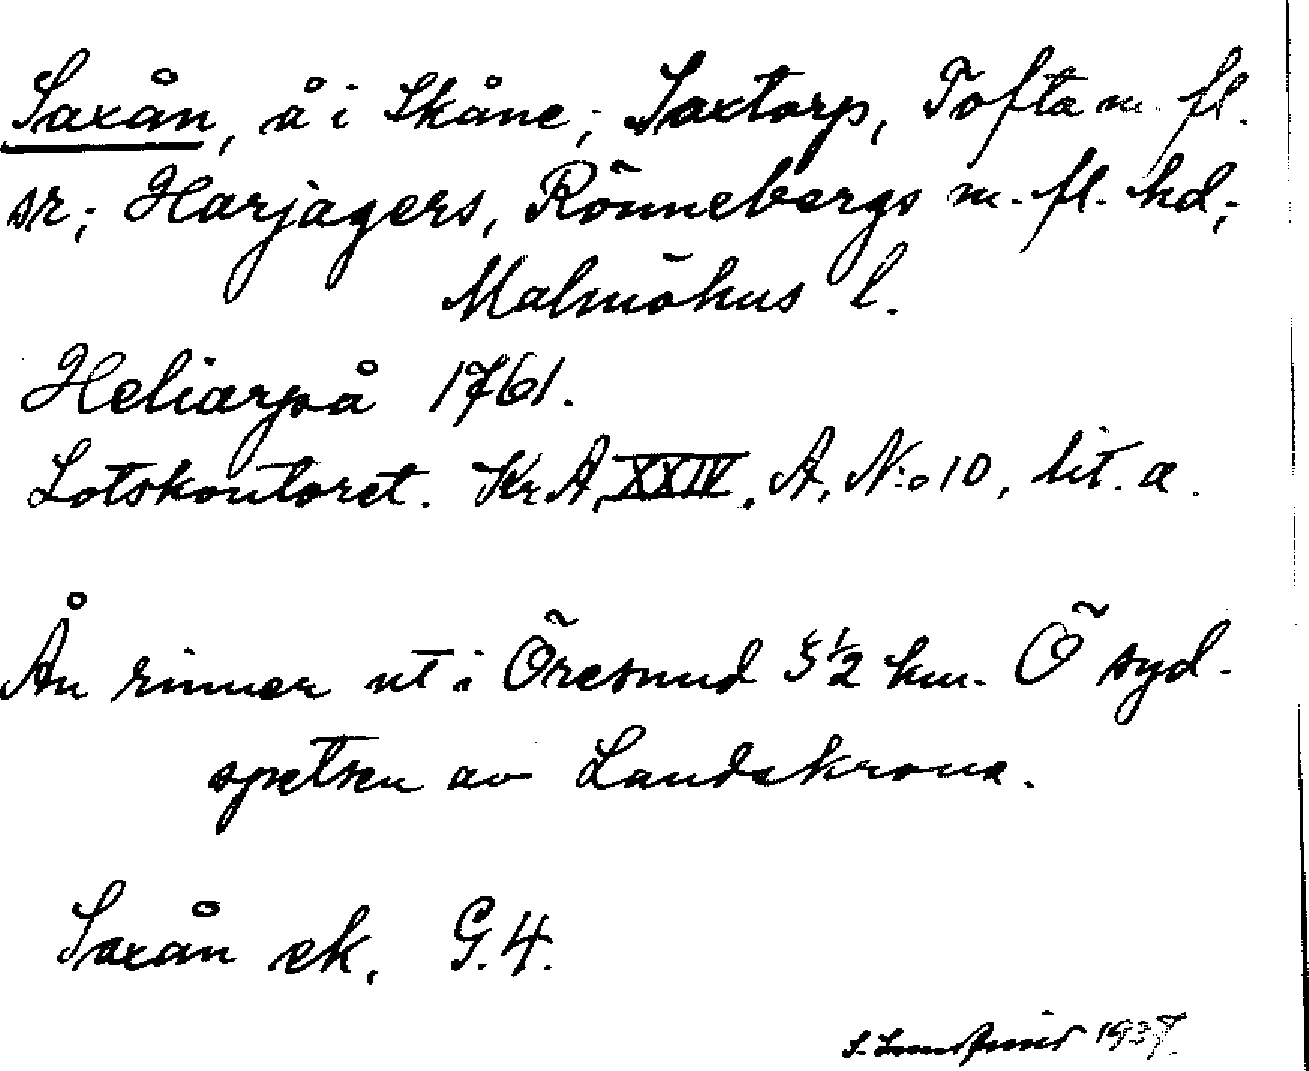 Saxån, å i Skåne; Saxtorp, Tofta m. fl.
sr; Harjagers, Rönnebergs m. fl. hd;
Malmöhus l.
Heliarpå 1761.
Lotskontoret. Kr. A. XXIV. A. N:o 10, lit. a.
Ån rinner ut i Öresund 5 1/2 km. Ö syd-
spetsen av Landskrona.
Saxån ek. G. 4.
1937.